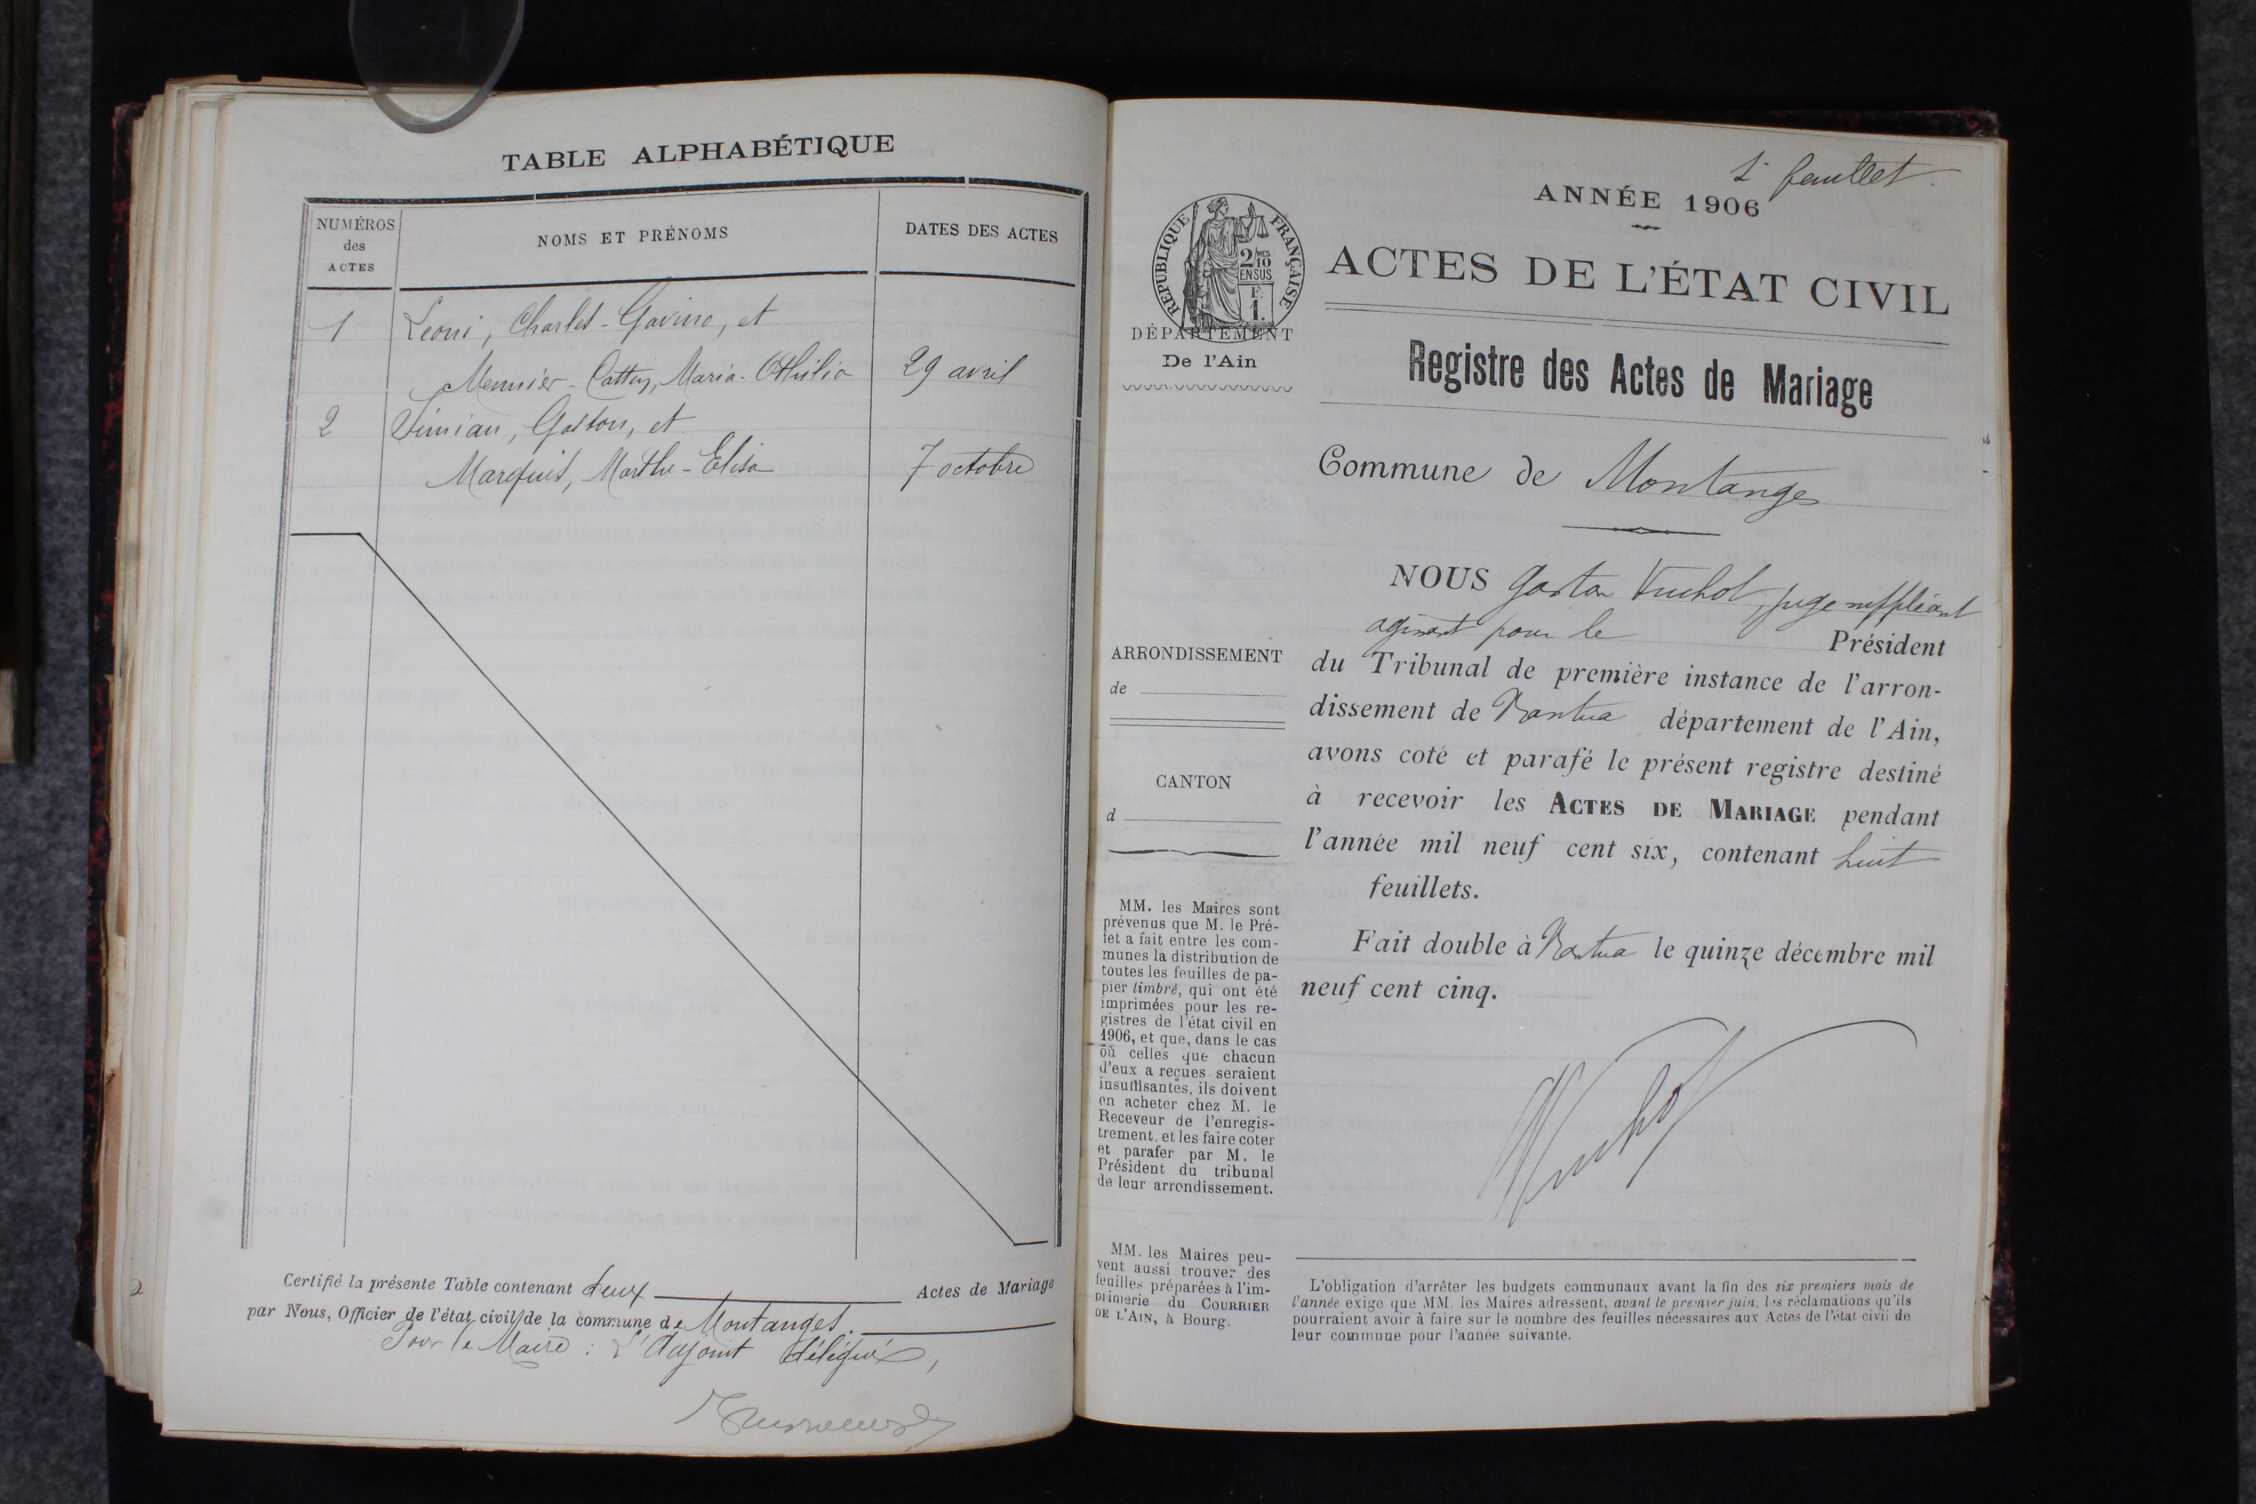 TABLE ALPHABÉTIQUE
NUMÉROS
des
ACTES
NOMS ET PRÉNOMS
DATES DES ACTES
1 Leoni, Charles-Gavino, et
Meunier-Cattey, Maria-Othilia 29 avril
2 Simian, Gaston, et
Marquis, Marthe-Elisa 7 octobre
Certifié la présente Table contenant deux Actes de Mariage
par Nous, Officier de l'état civil de la commune de Montanges.
Pour le Maire : L'Adjoint délégué,
2
1r feuillet.
ANNÉE 1906
RÉPUBLIQUE FRANÇAISE
2/10
EN SUS
F.
1.
DÉPARTEMENT
De l'Ain
ACTES DE L'ÉTAT CIVIL
Registre des Actes de Mariage
Commune de Montanges
NOUS Gaston Vuchot, juge suppléant
agissant pour le Président
du Tribunal de première instance de l'arron-
dissement de Nantua département de l'Ain,
avons coté et parafé le présent registre destiné
à recevoir les ACTES DE MARIAGE pendant
l'année mil neuf cent six, contenant huit
feuillets.
Fait double à Nantua le quinze décembre mil
neuf cent cinq.
Vuchot
ARRONDISSEMENT
de
CANTON
d
MM. les Maires sont
prévenus que M. le Pré-
fet a fait entre les com-
munes la distribution de
toutes les feuilles de pa-
pier timbré, qui ont été
imprimées pour les re-
gistres de l'état civil en
1906, et que, dans le cas
où celles que chacun
d'eux a reçues seraient
insuffisantes, ils doivent
en acheter chez M. le
Receveur de l'enregis-
trement, et les faire coter
et parafer par M. le
Président du tribunal
de leur arrondissement.
MM. les Maires peu-
vent aussi trouver des
feuilles préparées à l'im-
primerie du COURRIER
DE L'AIN, à Bourg.
L'obligation d'arrêter les budgets communaux avant la fin des six premiers mois de
l'année exige que MM. les Maires adressent, avant le premier juin, les réclamations qu'ils
pourraient avoir à faire sur le nombre des feuilles nécessaires aux Actes de l'état civil de
leur commune pour l'année suivante.